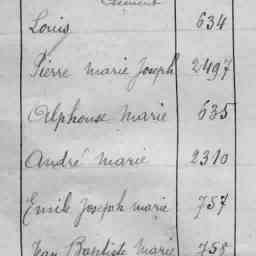 Clément
Louis 634
Pierre Marie Joseph 2497
Alphonse Marie 635
André Marie 2310
Emile Joseph Marie 757
Jean Baptiste Marie 758